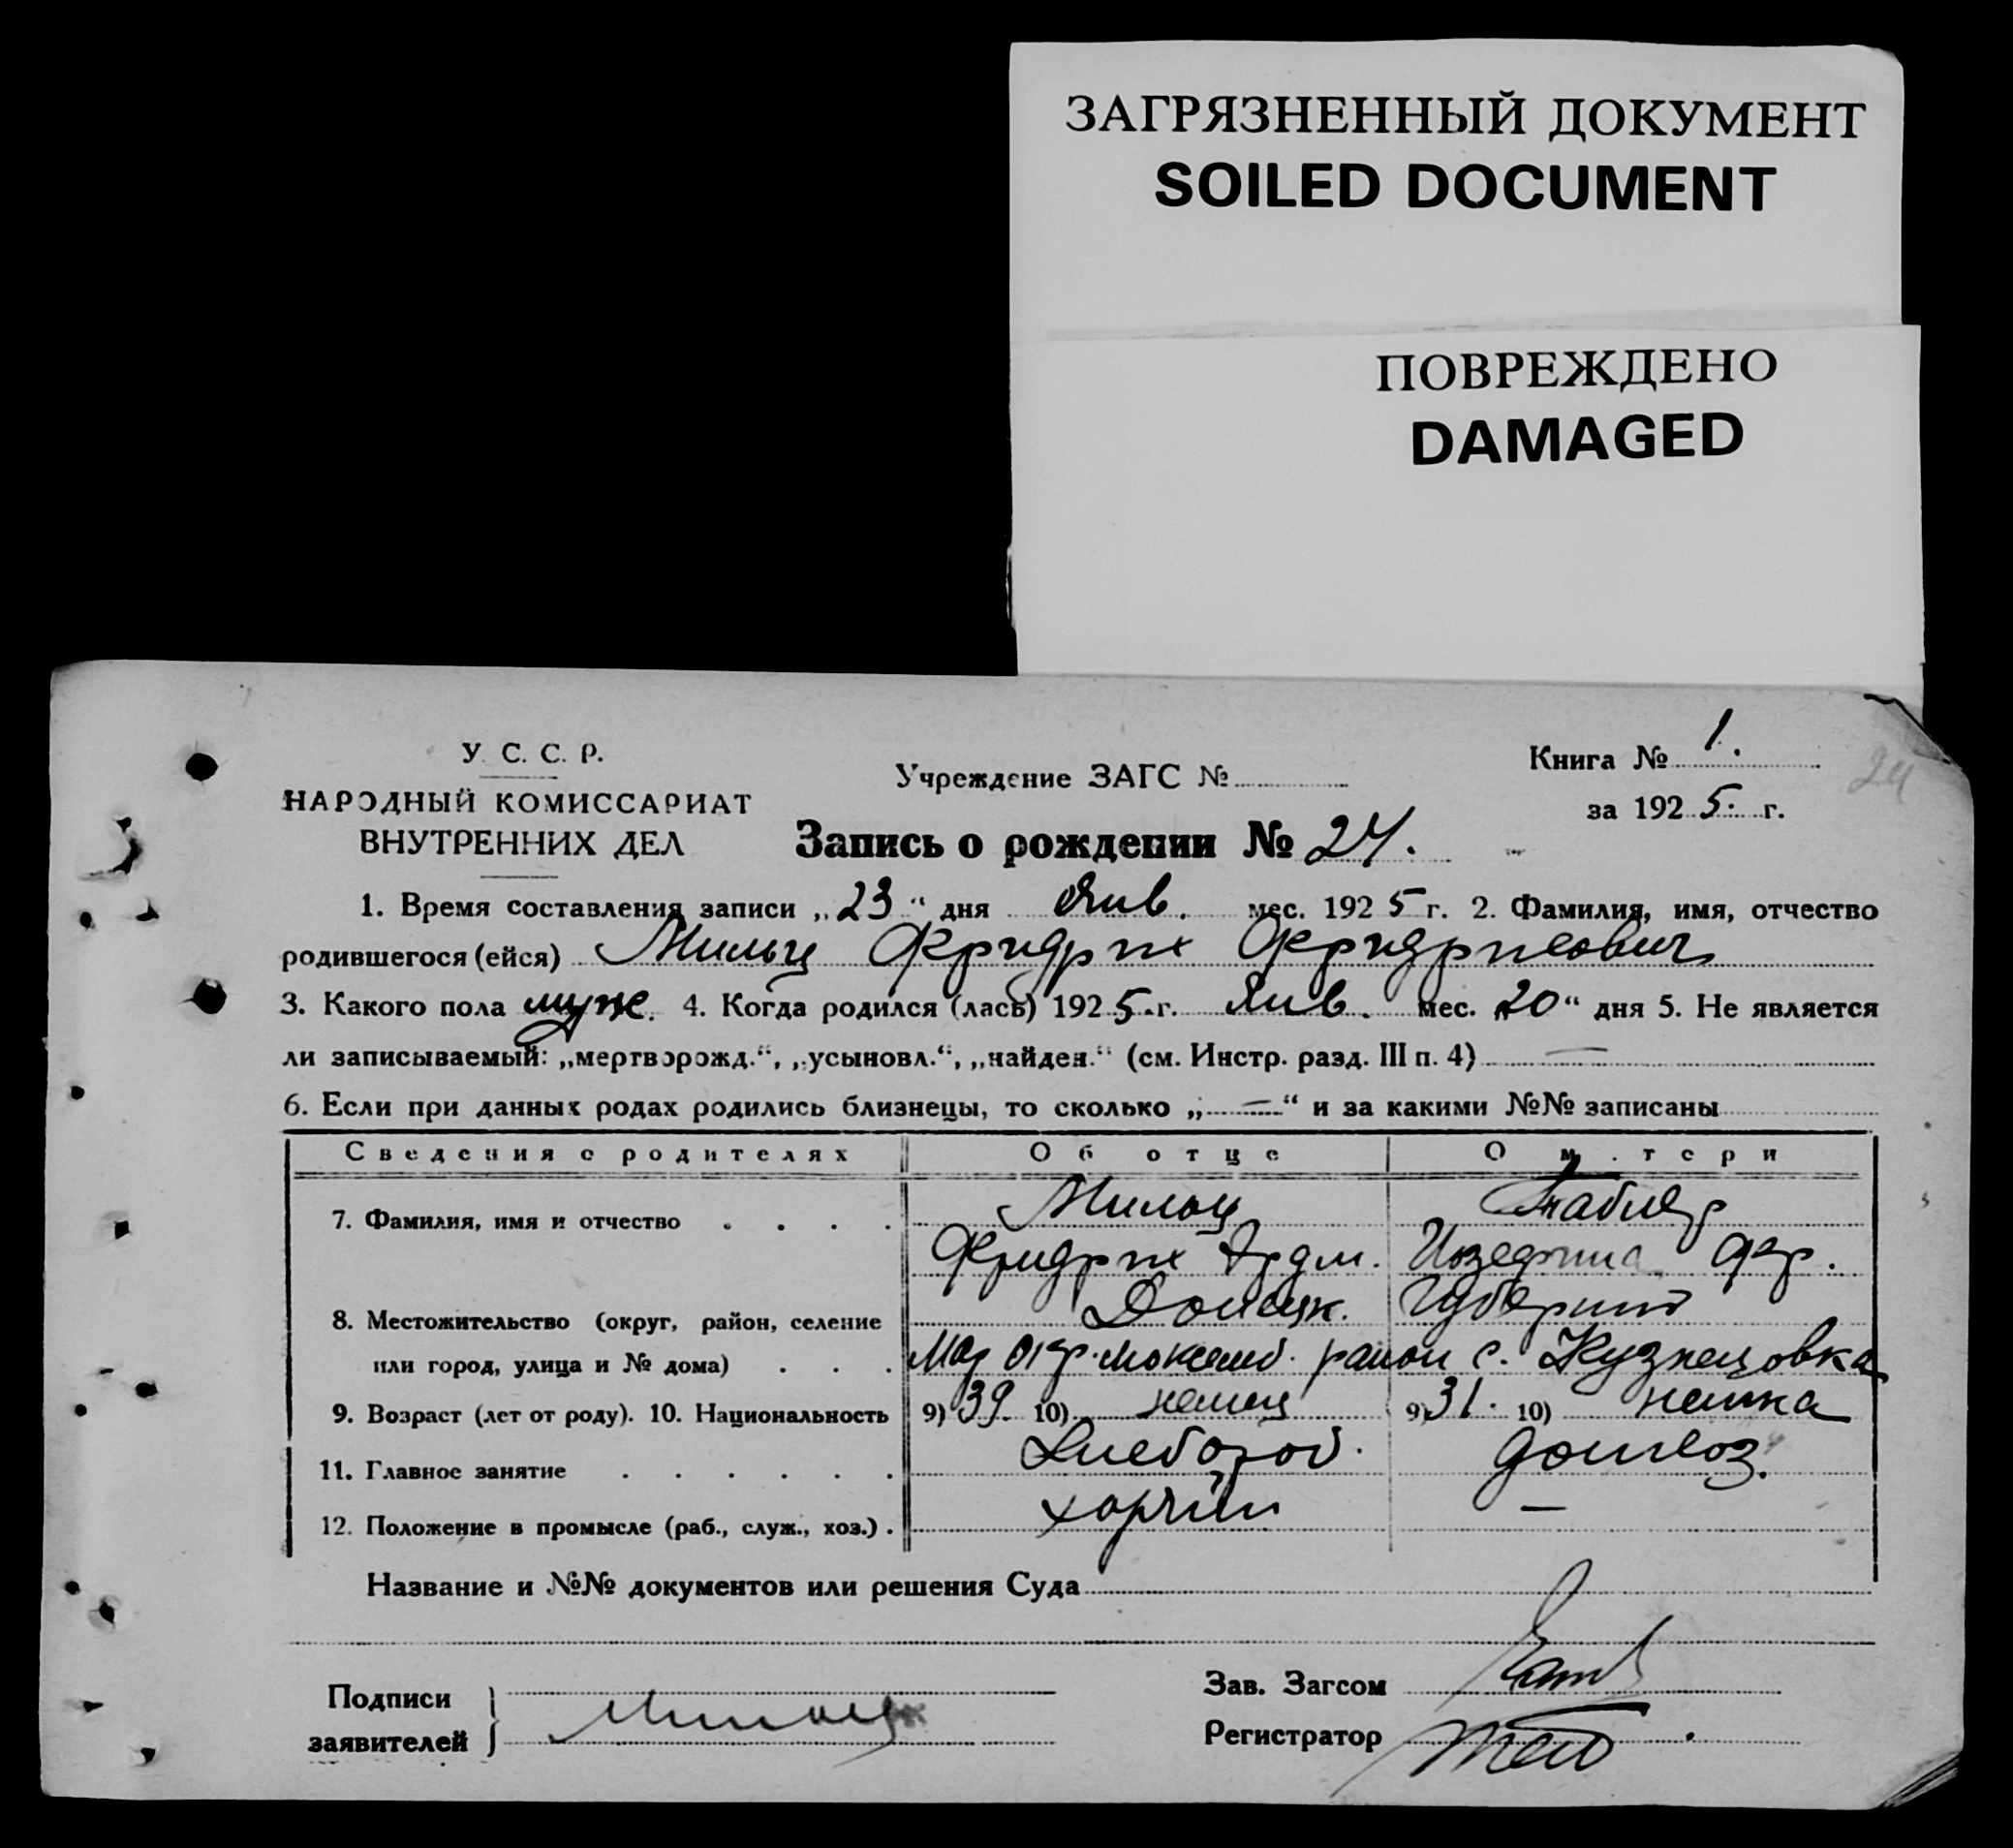 ЗАГРЯЗНЕННЫЙ ДОКУМЕНТ
SOILED DOCUMENT
ПОВРЕЖДЕНО
DAMAGED
У. С. С. Р.
НАРОДНЫЙ КОМИССАРИАТ
ВНУТРЕННИХ ДЕЛ
Учреждение ЗАГС №
Книга № 1.
24
за 1925. г.
Запись о рождении № 24.
1. Время составления записи „23“ дня Янв. мес. 1925 г. 2. Фамилия, имя, отчество
родившегося (ейся) Мильц Фридрих Фридрихович
3. Какого пола муж. 4. Когда родился (лась) 1925.г. Янв. мес. „20“ дня 5. Не является
ли записываемый: „мертворожд.“, „усыновл.“, „найден.“ (см. Инстр. разд. III п. 4) —
6. Если при данных родах родились близнецы, то сколько „—“ и за какими №№ записаны
Сведения о родителях Об отце О матери
7. Фамилия, имя и отчество Мильц
Фридрих Эрдм. Иозефина Фр.
8. Местожительство (округ, район, селение Донецк. Губернии
или город, улица и № дома) Мар окр. район с. Кузнецовка
9. Возраст (лет от роду). 10. Национальность 9) 39 10) немец 9) 31. 10) немка
11. Главное занятие Хлебороб. домхоз.
12. Положение в промысле (раб., служ., хоз.) . хозяин —
Название и №№ документов или решения Суда
Подписи
заявителей Мильц
Зав. Загсом
Регистратор